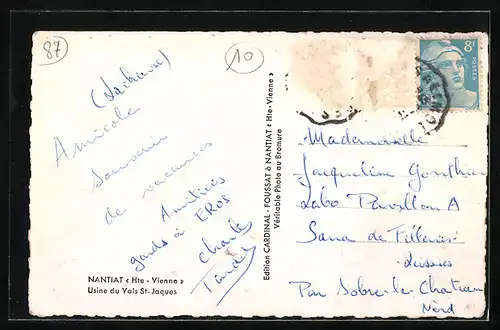 87
10
8F
POSTES
(Lachaise)
Amicale
Souvenir
de vacances
Amitiés
à EROS
Charles
NANTIAT « Hte - Vienne »
Usine du Vals St-Jaques
Edition CARDINAL - FOUSSAT à NANTIAT « Hte-Vienne »
Véritable Photo au Bromure
Mademoiselle
Jacqueline Gonthier
Labo Pavillon A
Sana de Felleries
Liessies
Par Solre-le-Chateau
Nord